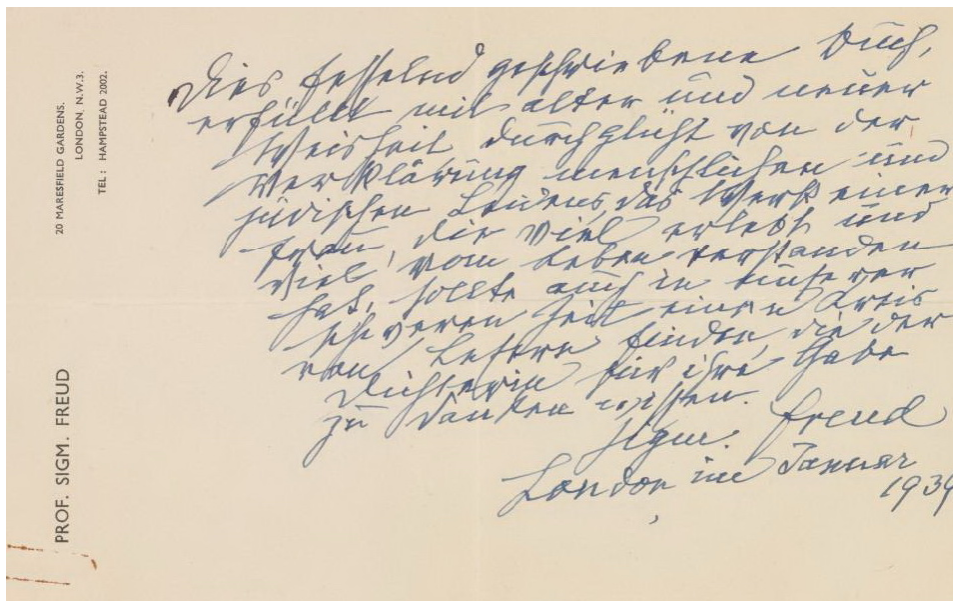 PROF. SIGM. FREUD
20 MARESFIELD GARDENS.
LONDON, N.W.3.
TEL: HAMPSTEAD 2002.
Dies fesselnd geschriebene Buch,
erfüllt mit alter und neuer
Weisheit durchglüht von der
Verklärung menschlichen und
jüdischen Leidens das Werk einer
Frau, die viel erlebt und
viel vom Leben verstanden
hat, sollte auch in unserer
schweren Zeit einen Kreis
von Lesern finden, die der
Dichterin für ihre Gabe
zu danken wissen.
Sigm. Freud
London im Januar
1939